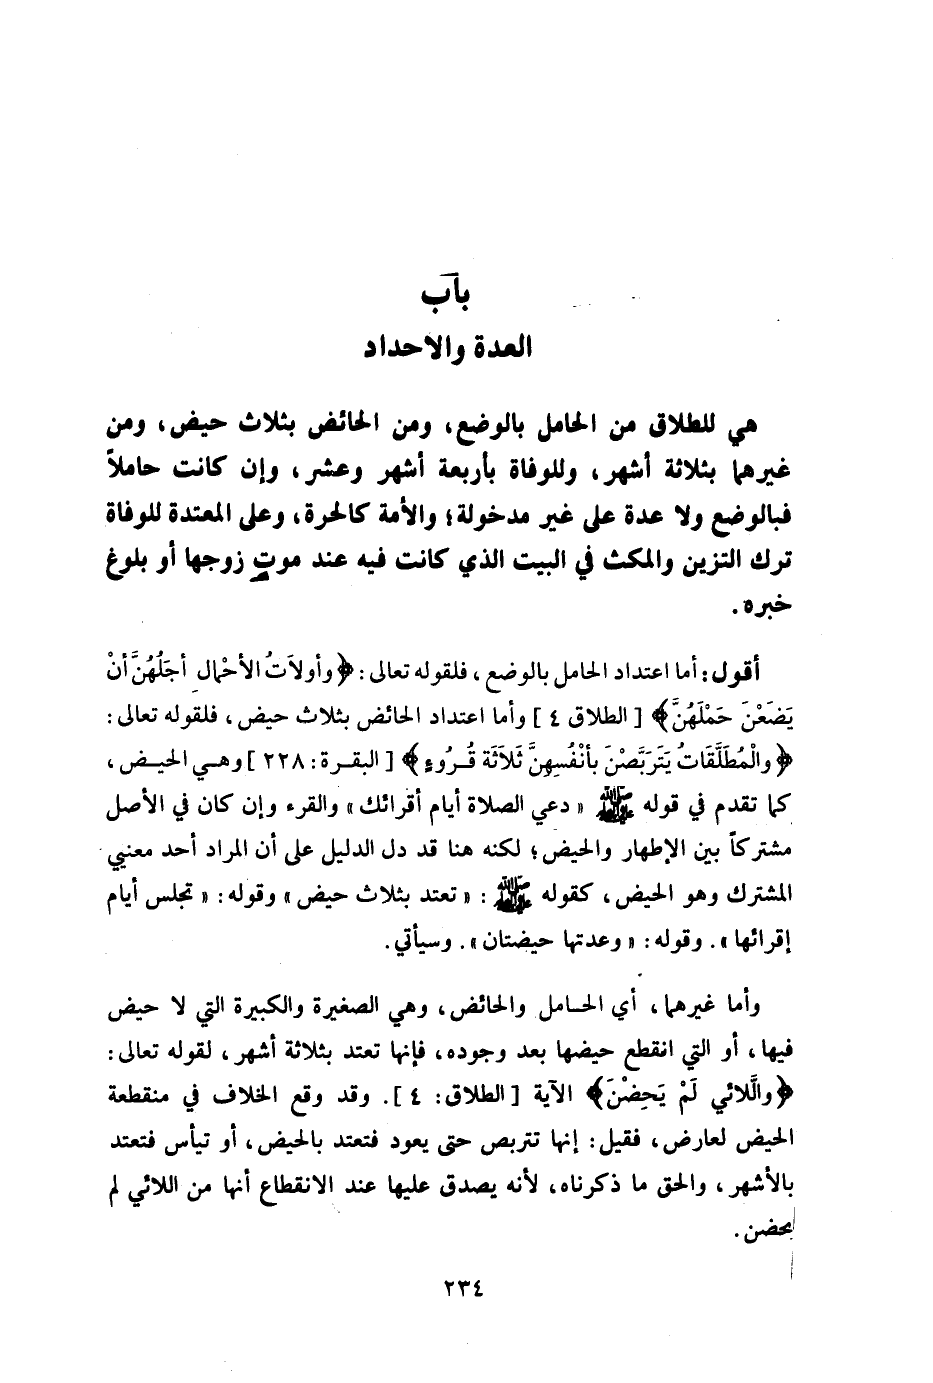 باب
العدة والاحداد
هي للطلاق من الحامل بالوضع، ومن الحائض بثلاث حيض، ومن
غيرهما بثلاثة أشهر، وللوفاة بأربعة أشهر وعشر، وإن كانت حاملاً
فبالوضع ولا عدة على غير مدخولة؛ والأمة كالحرة، وعلى المعتدة للوفاة
ترك التزين والمكث في البيت الذي كانت فيه عند موت زوجها أو بلوغ
خبره.
أقول: أما اعتداد الحامل بالوضع، فلقوله تعالى: ﴿وأولاَتُ الأحْمالِ أجَلُهُنَّ أنْ
يَضَعْنَ حَمْلَهُنَّ﴾ [الطلاق ٤] وأما اعتداد الحائض بثلاث حيض، فلقوله تعالى:
﴿والْمُطَلَّقَاتُ يَتَرَبَّصْنَ بأنْفُسِهِنَّ ثَلاَثَة قُـرُوءٍ﴾ [البقـرة: ٢٢٨] وهـي الحيـض،
كما تقدم في قوله ﷺ «دعي الصلاة أيام أقرائك» والقرء وإن كان في الأصل
مشتركاً بين الإطهار والحيض؛ لكنه هنا قد دل الدليل على أن المراد أحد معنيي
المشترك وهو الحيض، كقوله ﷺ: «تعتد بثلاث حيض» وقوله: «تجلس أيام
إقرائها». وقوله: «وعدتها حيضتان». وسيأتي.
وأما غيرهما، أي الحـامل والحائض، وهي الصغيرة والكبيرة التي لا حيض
فيها، أو التي انقطع حيضها بعد وجوده، فإنها تعتد بثلاثة أشهر، لقوله تعالى:
﴿واللَّائي لَمْ يَحِضْنَ﴾ الآية [الطلاق: ٤]. وقد وقع الخلاف في منقطعة
الحيض لعارض، فقيل: إنها تتربص حتى يعود فتعتد بالحيض، أو تيأس فتعتد
بالأشهر، والحق ما ذكرناه، لأنه يصدق عليها عند الانقطاع أنها من اللائي لم
يحضن.
٢٣٤